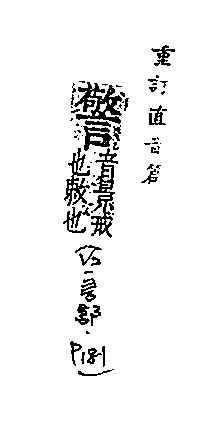 重訂直音篇
警
音景戒
也敕也
言部.
P181